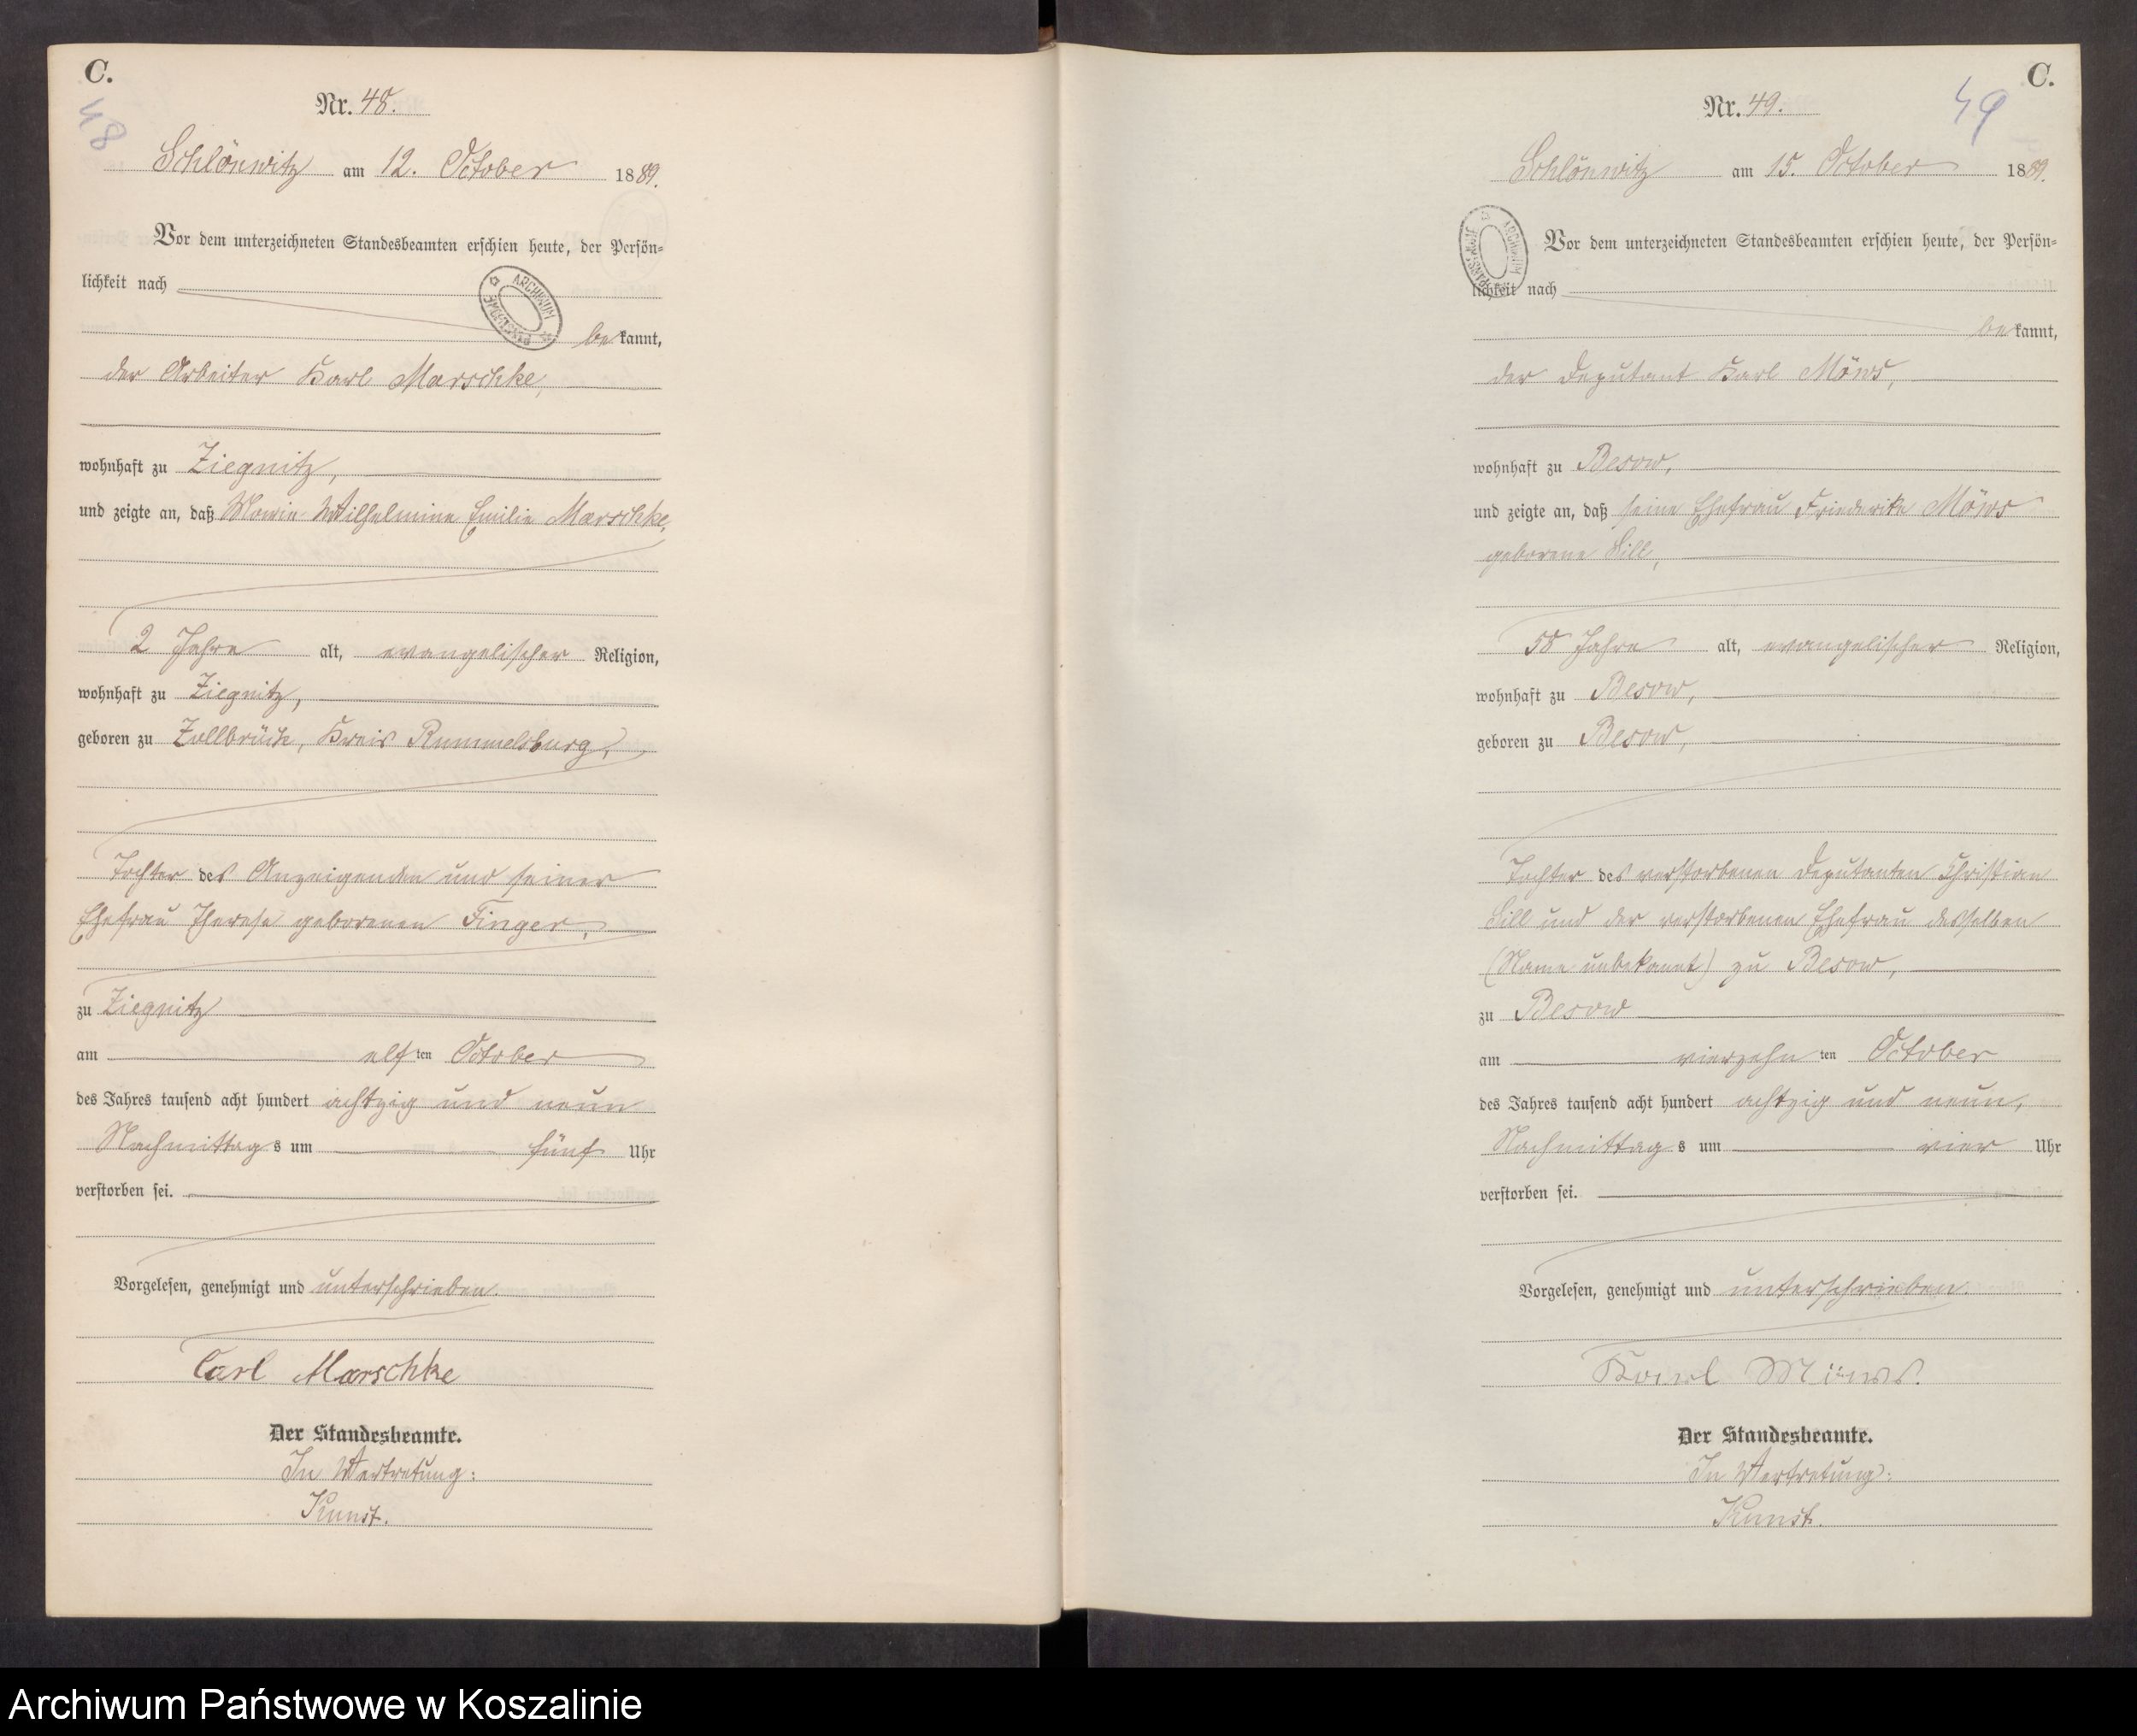 C.
48
Nr. 48.
Schlönwitz am 12. October 1889.
Vor dem unterzeichneten Standesbeamten erschien heute, der Persön-
lichkeit nach
bekannt,
der Arbeiter Karl Marschke,
wohnhaft zu Ziegnitz,
und zeigte an, daß Marie Wilhelmine Emilie Marschke,
2 Jahre alt, evangelischer Religion,
wohnhaft zu Ziegnitz,
geboren zu Zollbrück, Kreis Rummelsburg,
Tochter des Anzeigenden und seiner
Ehefrau Therese geborenen Finger,
zu Ziegnitz
am elften October
des Jahres tausend acht hundert achtzig und neun
Nachmittags um fünf Uhr
verstorben sei.
Vorgelesen, genehmigt und unterschrieben.
Carl Marschke
Der Standesbeamte.
In Vertretung:
Kunst.
C.
49
Nr. 49.
Schlönwitz am 15. October 1889.
Vor dem unterzeichneten Standesbeamten erschien heute, der Persön-
lichkeit nach
bekannt,
der Deputant Karl Möws,
wohnhaft zu Besow,
und zeigte an, daß seine Ehefrau Friederike Möws
geborene Sill,
58 Jahre alt, evangelischer Religion,
wohnhaft zu Besow,
geboren zu Besow,
Tochter des verstorbenen Deputanten Christian
Sill und der verstorbenen Ehefrau desselben
(Name unbekannt) zu Besow,
zu Besow
am vierzehnten October
des Jahres tausend acht hundert achtzig und neun,
Nachmittags um vier Uhr
verstorben sei.
Vorgelesen, genehmigt und unterschrieben.
Karl Möws.
Der Standesbeamte.
In Vertretung:
Kunst.
Archiwum Państwowe w Koszalinie